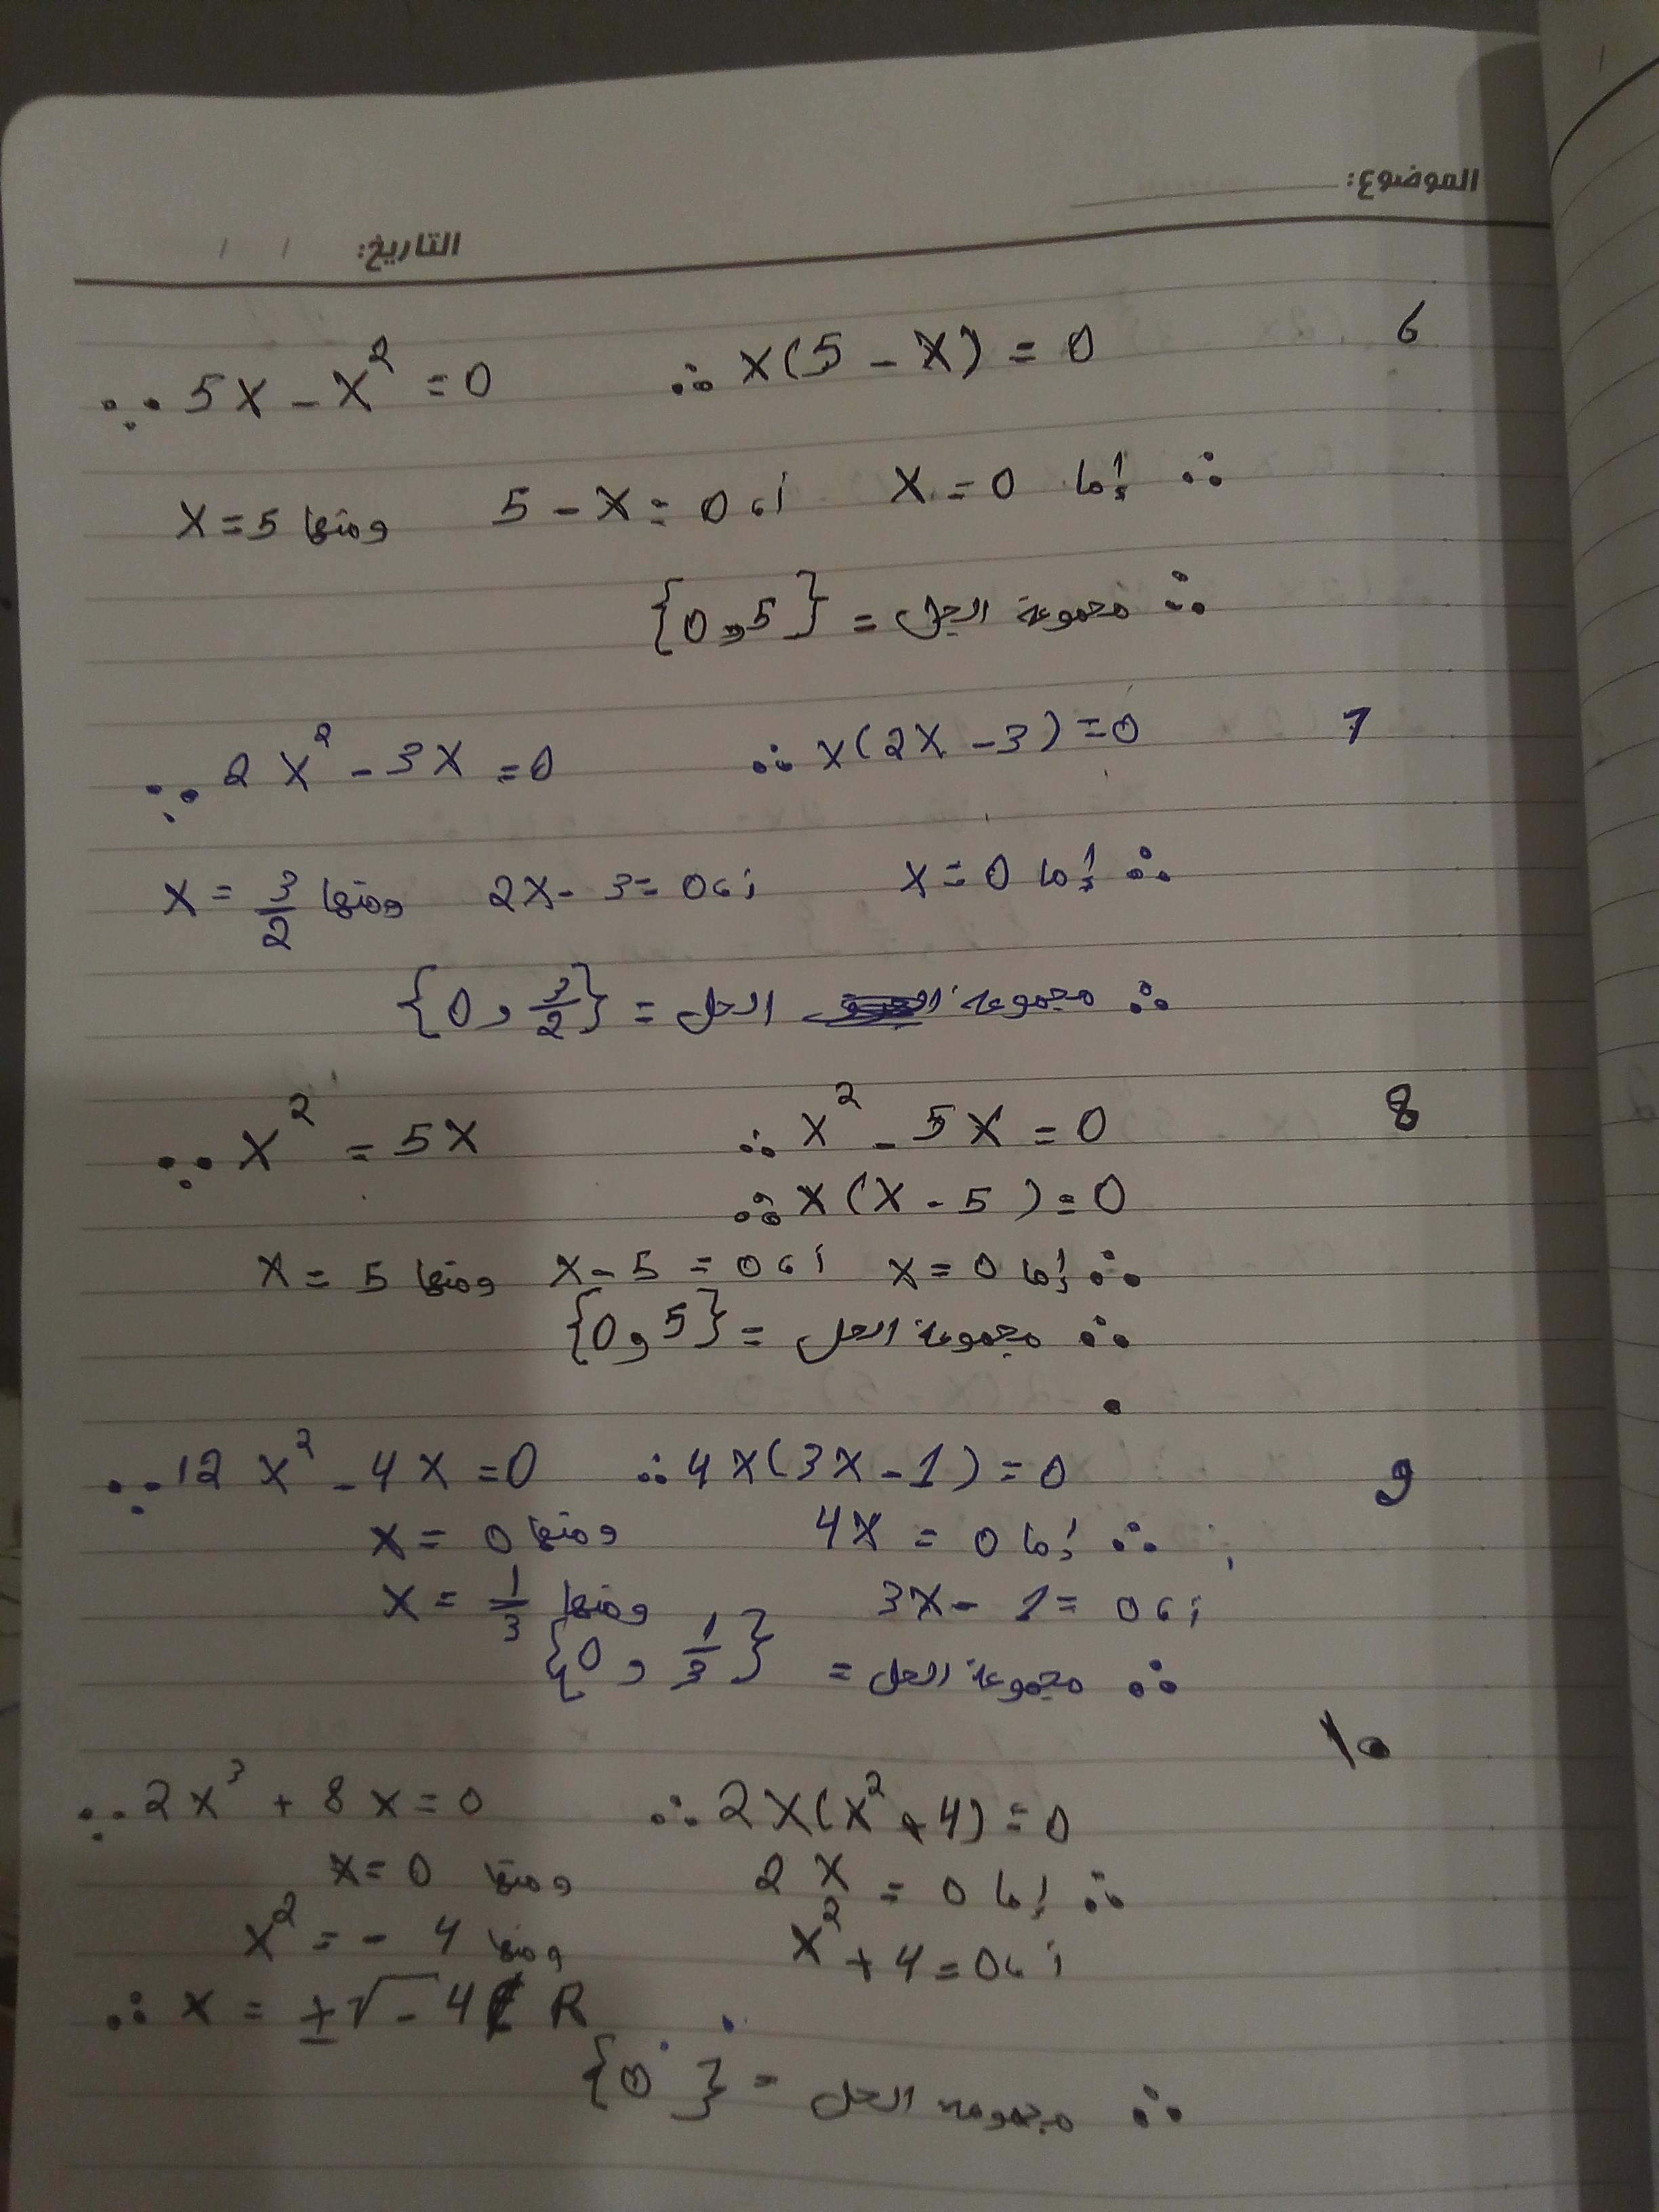 الموضوع:
التاريخ: / /
6
∵ 5x - x² = 0 ∴ x(5 - x) = 0
∴ إما x = 0 أو 5 - x = 0 ومنها x = 5
∴ مجموعة الحل = {0 و 5}
7
∵ 2x² - 3x = 0 ∴ x(2x - 3) = 0
∴ إما x = 0 أو 2x - 3 = 0 ومنها x = 3/2
∴ مجموعة الحل = {0 و 3/2}
8
∵ x² = 5x ∴ x² - 5x = 0
∴ x(x - 5) = 0
∴ إما x = 0 أو x - 5 = 0 ومنها x = 5
∴ مجموعة الحل = {0 و 5}
9
∵ 12x² - 4x = 0 ∴ 4x(3x - 1) = 0
∴ إما 4x = 0 ومنها x = 0
أو 3x - 1 = 0 ومنها x = 1/3
∴ مجموعة الحل = {0 و 1/3}
10
∵ 2x³ + 8x = 0 ∴ 2x(x² + 4) = 0
∴ إما 2x = 0 ومنها x = 0
أو x² + 4 = 0 ومنها x² = - 4
∴ x = ±√-4 ∉ R
∴ مجموعة الحل = {0}